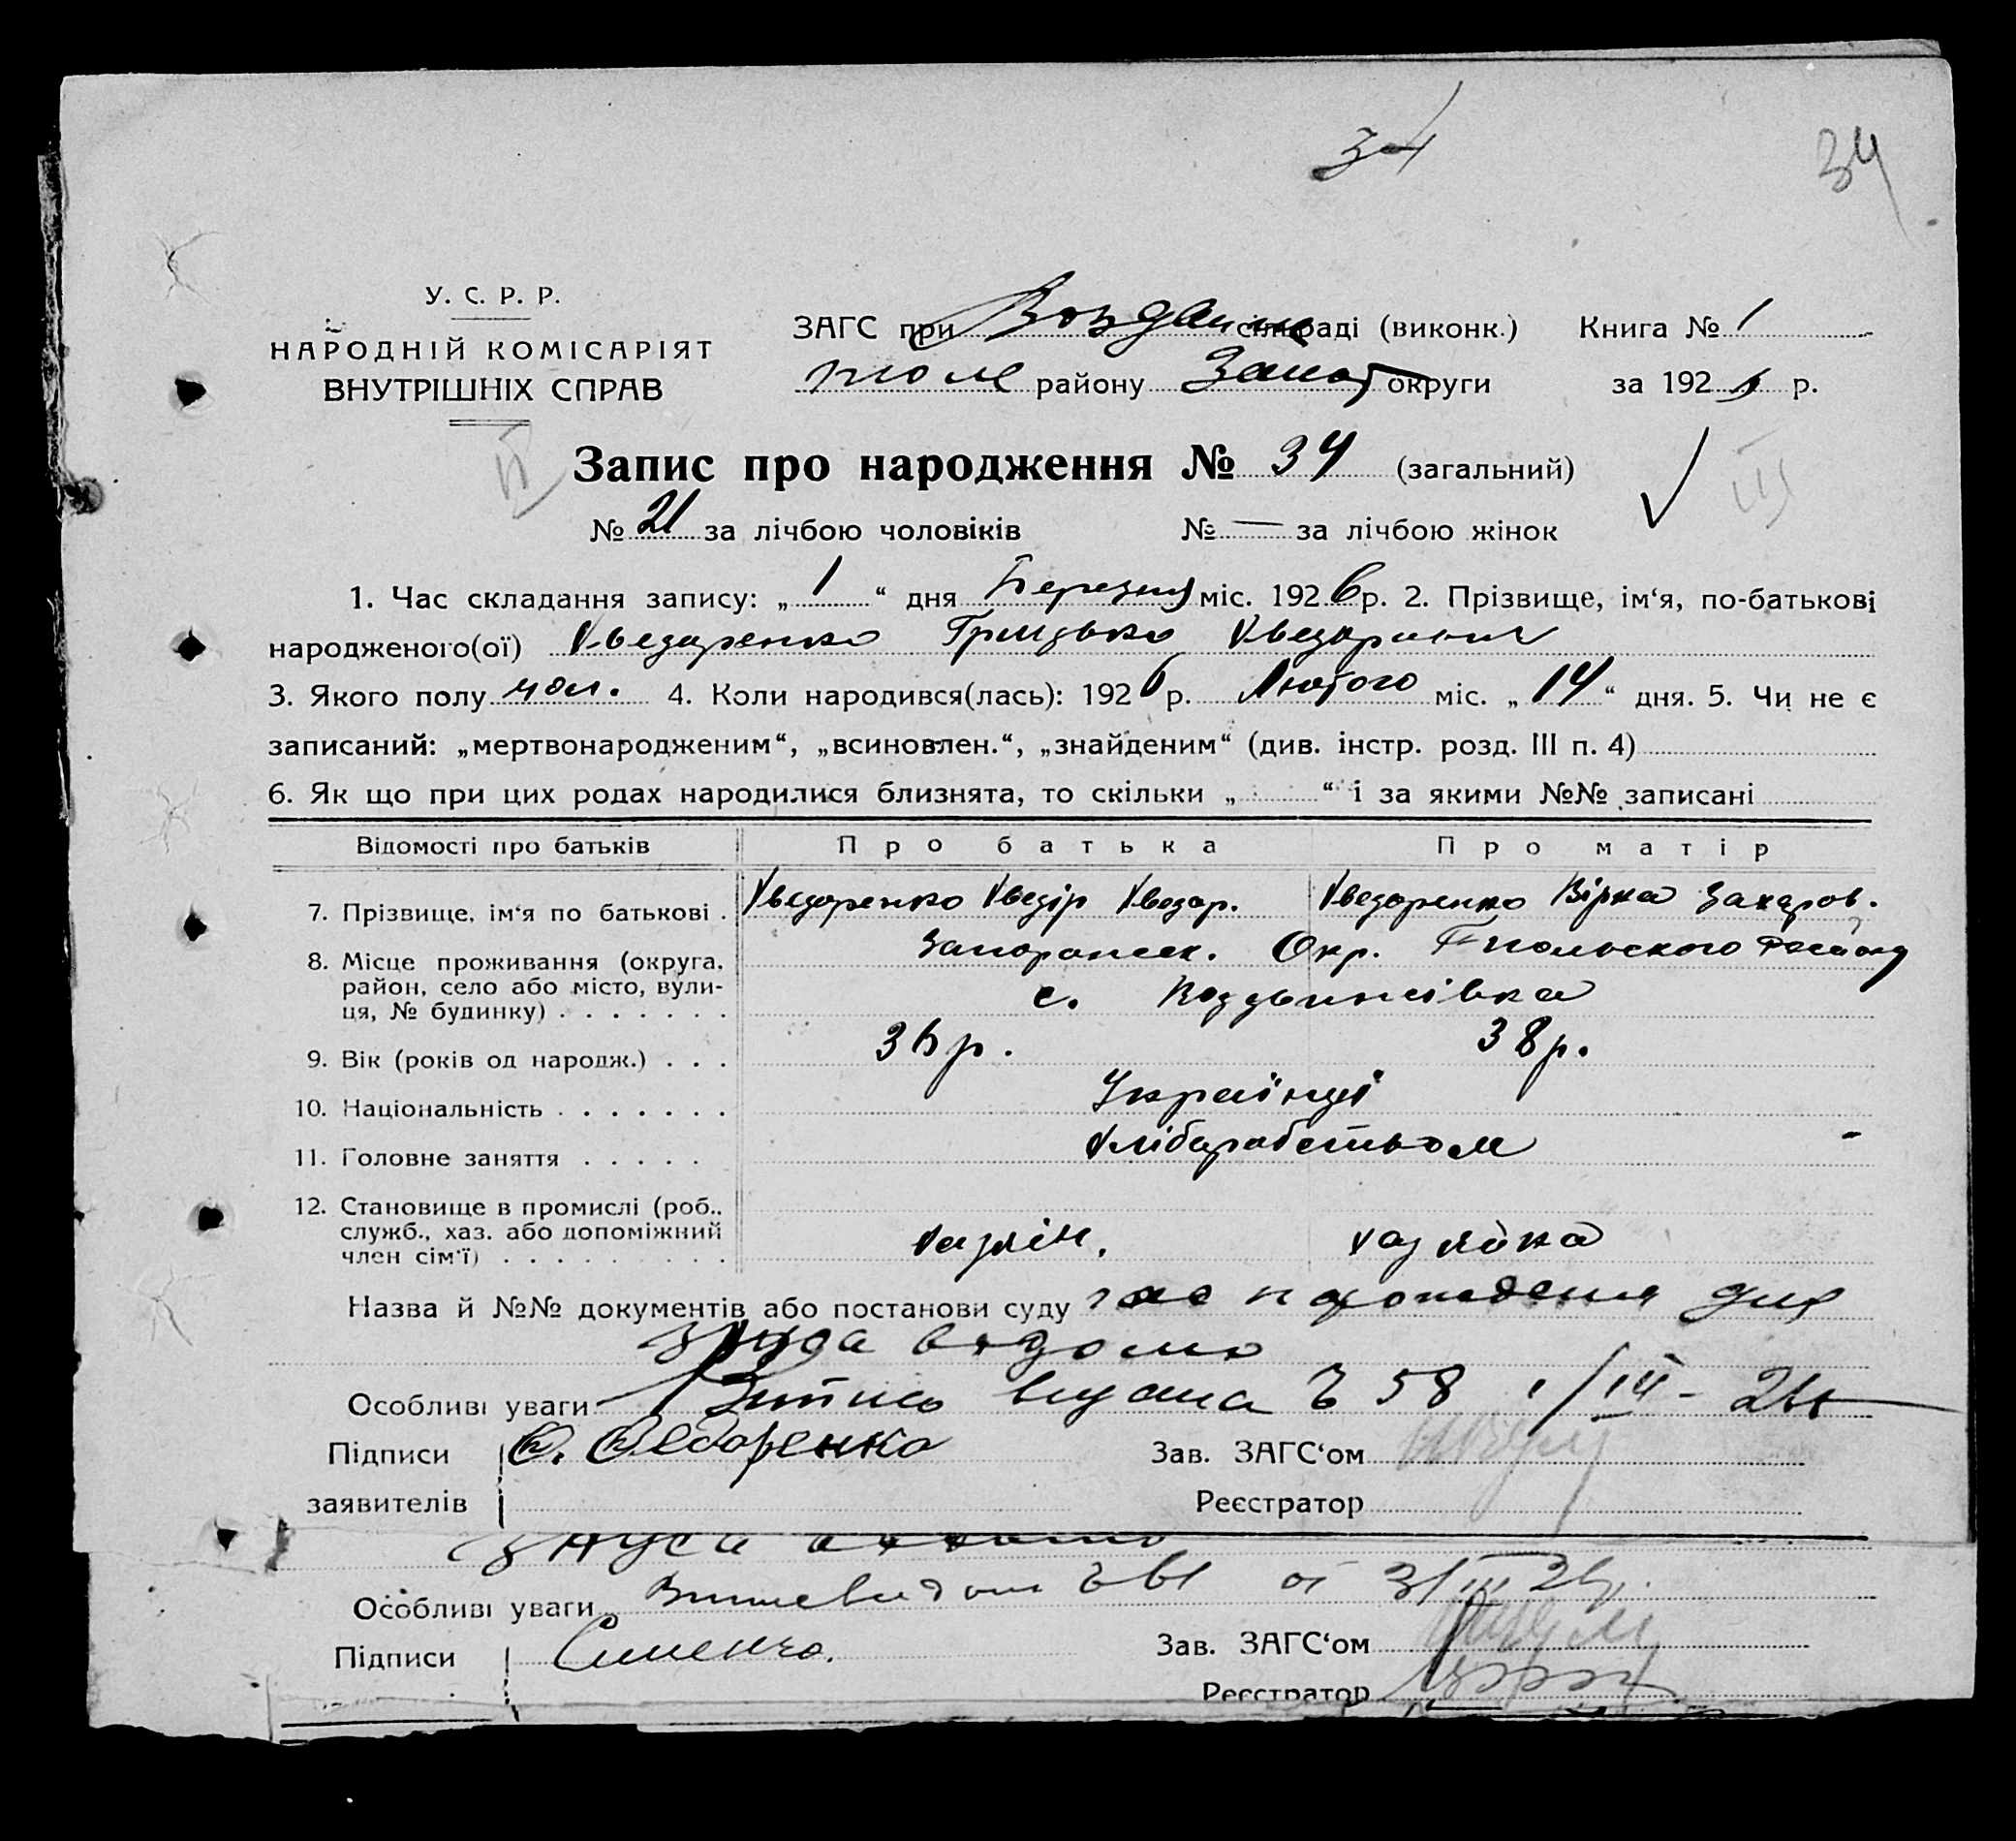 34
34
У. С. Р. Р.
НАРОДНІЙ КОМІСАРІЯТ
ВНУТРІШНІХ СПРАВ
ЗАГС при сільраді (виконк.) Книга № 1
району округи за 192 р.
Запис про народження № 34 (загальний)
№ 21 за лічбою чоловіків № — за лічбою жінок
III
1. Час складання запису: „ 1 “ дня Березня міс. 192 6 р. 2. Прізвище, ім‘я, по-батькові
народженого(ої) Хведоренко Грицько Хведорович
3. Якого полу чол. 4. Коли народився(лась): 192 6 р. Лютого міс. „ 14 “ дня. 5. Чи не є
записаний: „мертвонародженим“, „всиновлен.“, „знайденим“ (див. інстр. розд. III п. 4)
6. Як що при цих родах народилися близнята, то скільки „ “ і за якими №№ записані
Відомості про батьків Про батька Про матір
7. Прізвище, ім‘я по батькові . Хведоренко Хведір Хведор. Хведоренко Вірка Захаров.
8. Місце проживання (округа, Запорожск. Окр.
район, село або місто, вули-
ця, № будинку) . . . . . . . с. Воздвижівка
9. Вік (років од народж.) . . . 36 р. 38 р.
10. Національність . . . . . . . Українці
11. Головне заняття . . . . . Хліборобством -
12. Становище в промислі (роб.,
служб., хаз. або допоміжний
член сім‘ї) . . . . . . . . . хазяїн. хазяйка
Назва й №№ документів або постанови суду
загса відомо
Особливі уваги 58 1/III - 26
Підписи Ф. Федоренко Зав. ЗАГС‘ом
заявителів Реєстратор
Особливі уваги
Підписи Зав. ЗАГС‘ом
Реєстратор